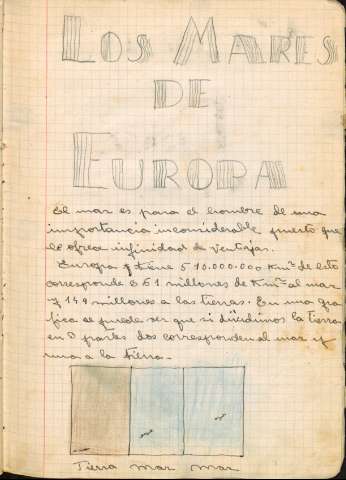 LOS MARES
DE
EUROPA
El mar es para el hombre de una
importancia inconsiderable puesto que
le ofrece infinidad de ventajas.
Europa tiene 510.000.000 Km² de esto
corresponde 361 millones de Km² al mar
y 149 millones a las tierras. En una gra
fica se puede ver que si dividimos la tierra
en 3 partes dos corresponden al mar y
una a la tierra.
Tierra mar mar